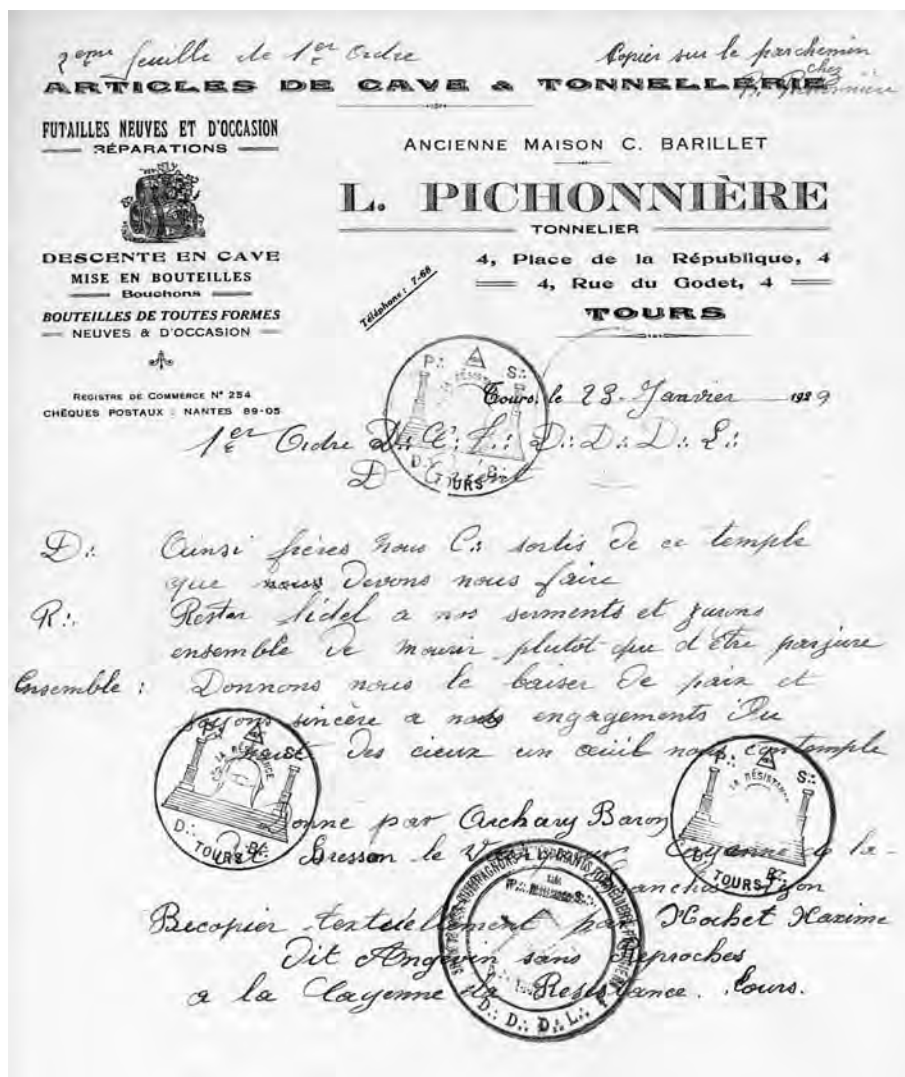 2eme feuille de 1er Ordre
Copier sur le parchemin
chez
ARTICLES DE CAVE & TONNELLERIE
FUTAILLES NEUVES ET D'OCCASION
RÉPARATIONS
DESCENTE EN CAVE
MISE EN BOUTEILLES
Bouchons
BOUTEILLES DE TOUTES FORMES
NEUVES & D'OCCASION
REGISTRE DE COMMERCE N° 254
CHÈQUES POSTAUX : NANTES 89-05
ANCIENNE MAISON C. BARILLET
L. PICHONNIÈRE
TONNELIER
4, Place de la République, 4
4, Rue du Godet, 4
Téléphone : 7-68
TOURS
Tours, le 23 Janvier 1929
1er Ordre D∴ C∴ F∴ D∴ D∴ D∴ L∴
D∴ Ainsi frères nous C∴ sortis de ce temple
que nous devons nous faire
R∴ Rester fidel a nos serments et jurons
ensemble de mourir plutôt que d'être parjure
Ensemble : Donnons nous le baiser de paix et
soyons sincère a nos engagements Du
haut des cieux un œuil nous contemple
P∴ S∴
LA RÉSISTANCE
D∴
TOURS
P∴ S∴
LA RÉSISTANCE
TOURS
P∴ S∴
LA RÉSISTANCE
D∴
TOURS
Donne par Archary Baron
Bresson le Cayenne de la
Lyon
Recopier textuellement par Hochet Maxime
Dit Angevin sans Reproches
a la Cayenne la Resistance. Tours.
D∴ D∴ D∴ L∴